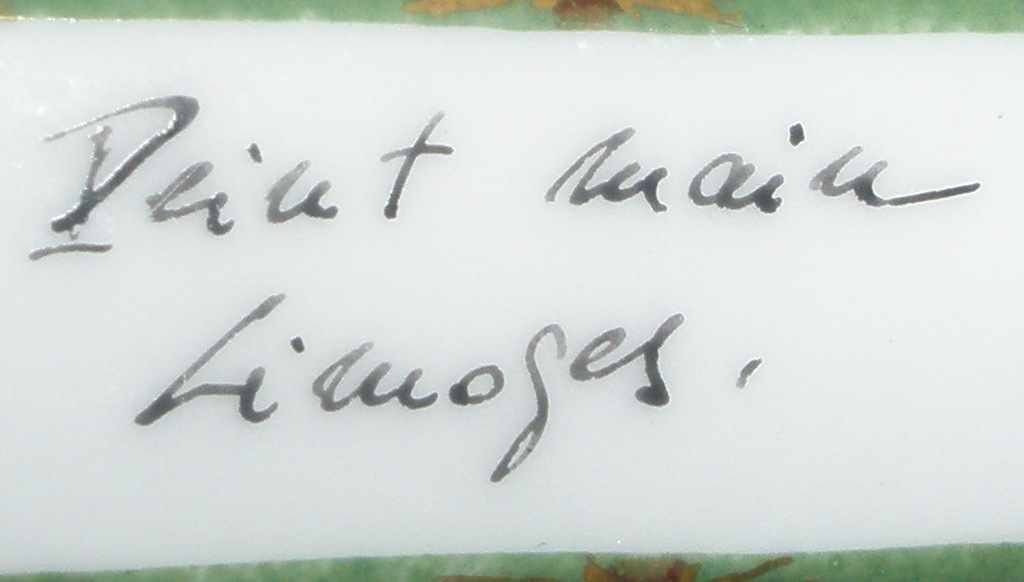 Peint main
Limoges.